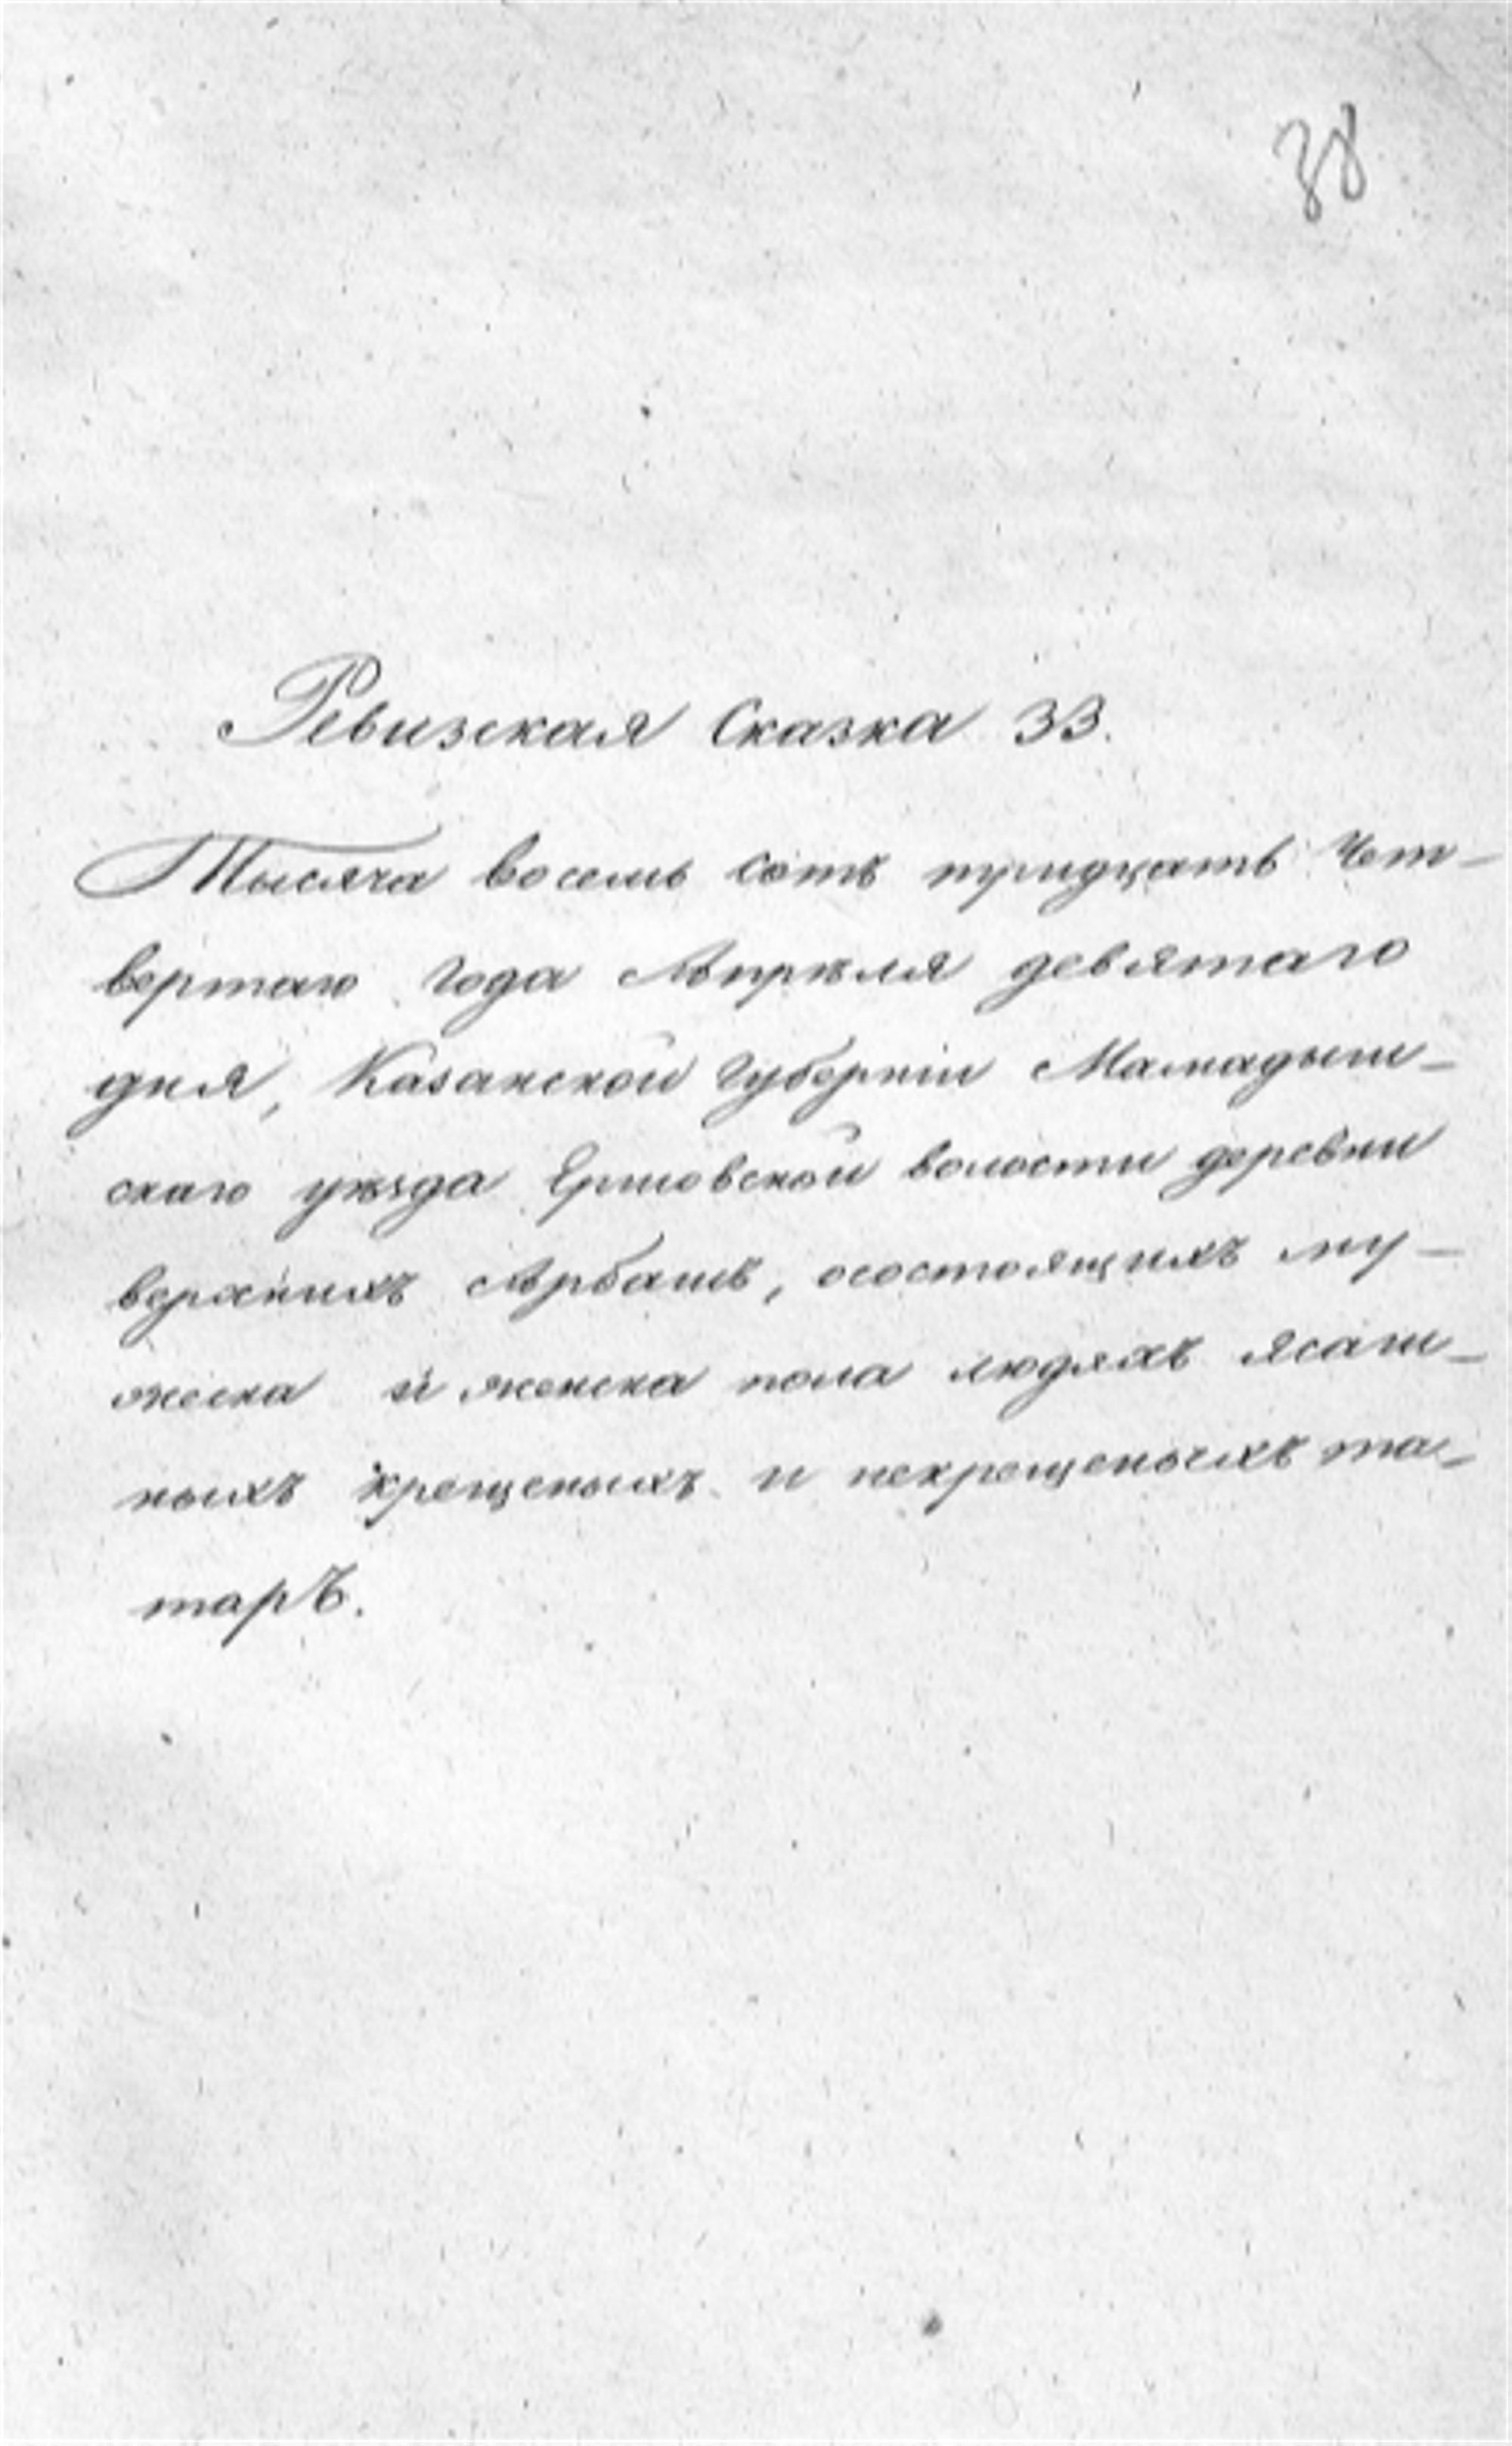 38
Ревизская Сказка 33.
Тысяча восемь сотъ тридцать Чет-
вертаго года Апрѣля девятаго
дня, Казанской Губерніи Мамадыш-
скаго уѣзда Ершовской волости деревни
верхнихъ Арбашъ, осостоящихъ му-
жеска и женска пола людяхъ ясаш-
ныхъ крещеныхъ и некрещеныхъ та-
таръ.